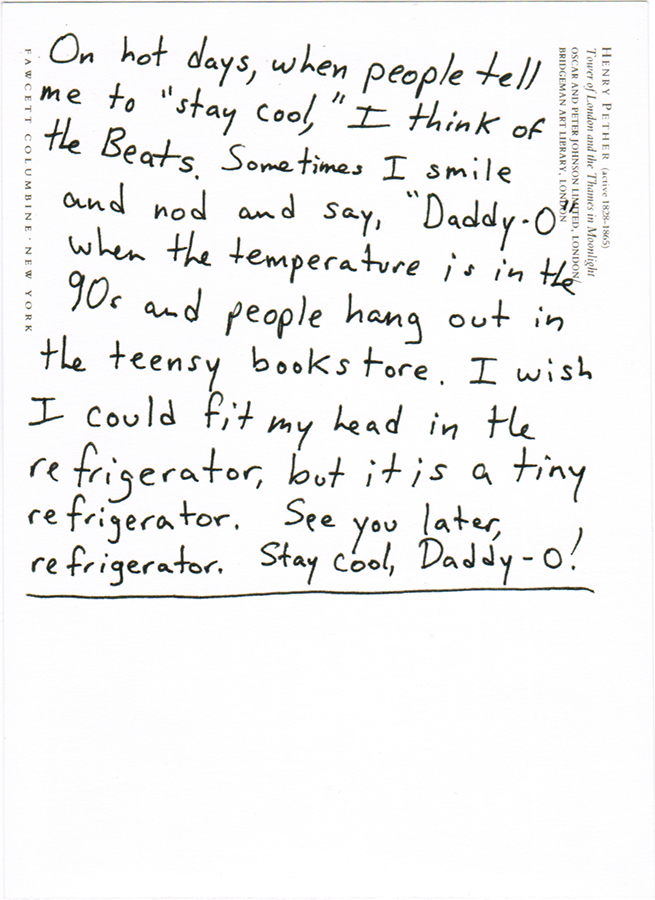 On hot days, when people tell
me to "stay cool," I think of
the Beats. Sometimes I smile
and nod and say, "Daddy-O"
when the temperature is in the
90s and people hang out in
the teensy bookstore. I wish
I could fit my head in the
refrigerator, but it is a tiny
refrigerator. See you later,
refrigerator. Stay cool, Daddy-O!
HENRY PETHER (active 1828-1865)
Tower of London and the Thames in Moonlight
OSCAR AND PETER JOHNSON LIMITED, LONDON/
BRIDGEMAN ART LIBRARY, LONDON
FAWCETT COLUMBINE · NEW YORK